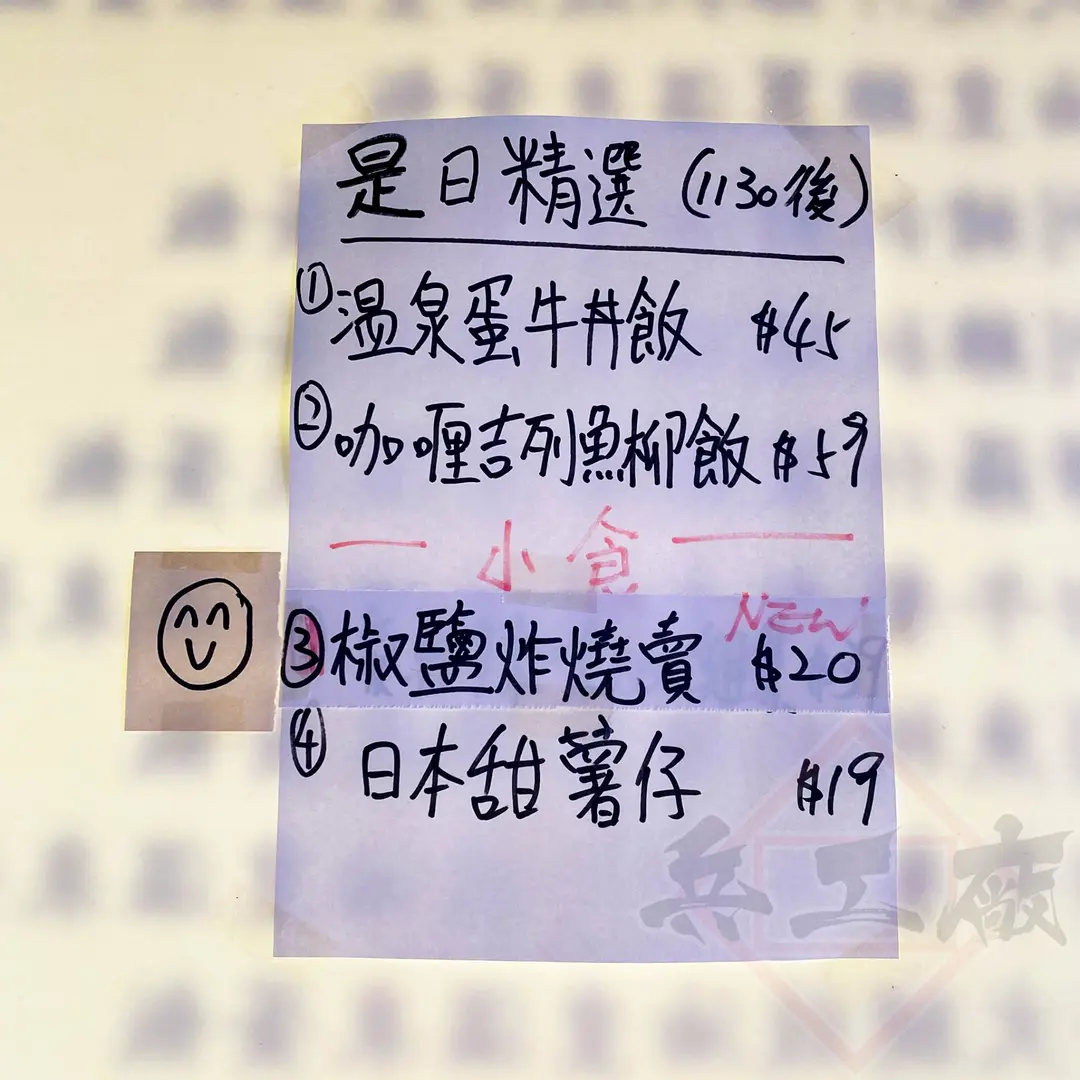 是日精選 (1130後)
① 温泉蛋牛丼飯 $45
② 咖喱吉列魚柳飯 $59
小食
NEW
③ 椒鹽炸燒賣 $20
④ 日本甜薯仔 $19
兵工廠